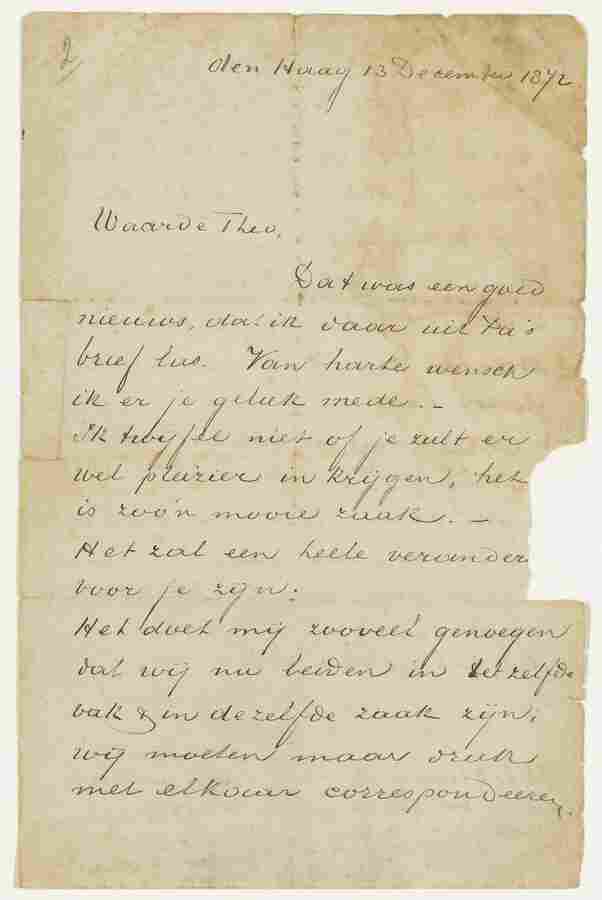 2
den Haag 13 December 1872
Waarde Theo,
Dat was een goed
nieuws, dat ik daar uit Pa's
brief las. Van harte wensch
ik er je geluk mede. –
Ik twyfel niet of je zult er
wel pleizier in krijgen, het
is zoo'n mooie zaak. –
Het zal een heele verander
voor je zijn.
Het doet mij zooveel genoegen
dat wij nu beiden in dezelfde
vak & in dezelfde zaak zijn,
wij moeten maar druk
met elkaar correspondeeren.